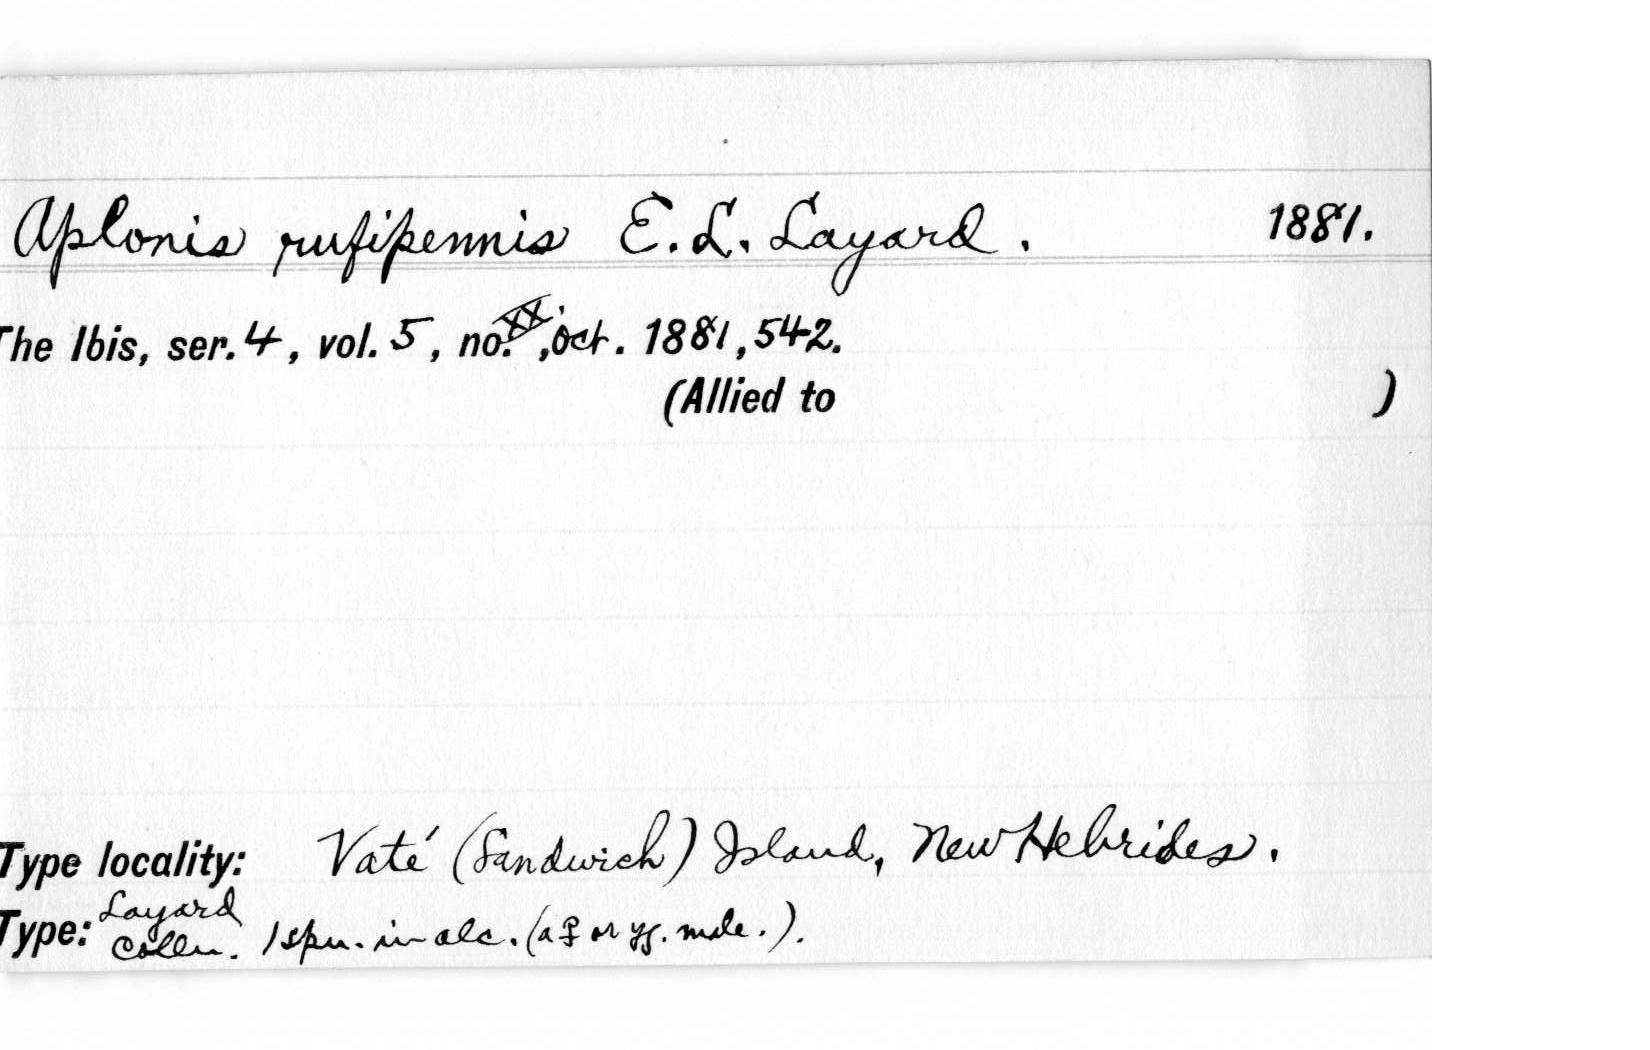 Aplonis rufipennis E. L. Layard. 1881.
The Ibis, ser. 4, vol. 5, no. XX, Oct. 1881, 542.
(Allied to )
Type locality: Vaté (Sandwich) Island, New Hebrides.
Type: Layard Colln. 1 spn. in alc. (a ♀ or yg. male.).